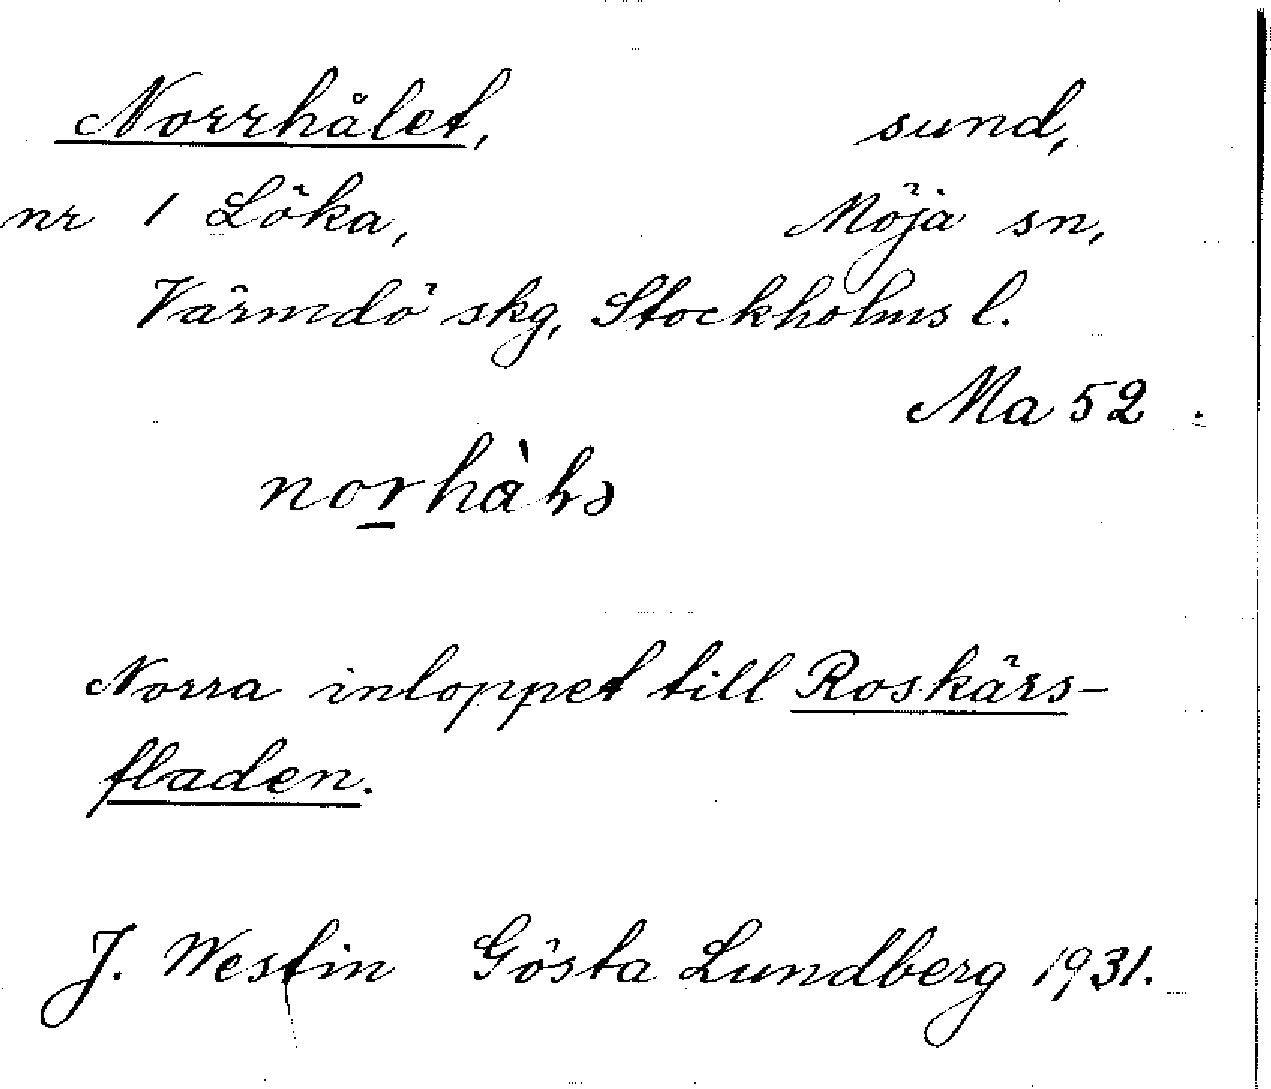 Norrhålet, sund,
nr 1 Löka, Möja sn,
Värmdö skg, Stockholms l.
Ma 52
Norra inloppet till Roskärs-
fladen.
J. Westin Gösta Lundberg 1931.